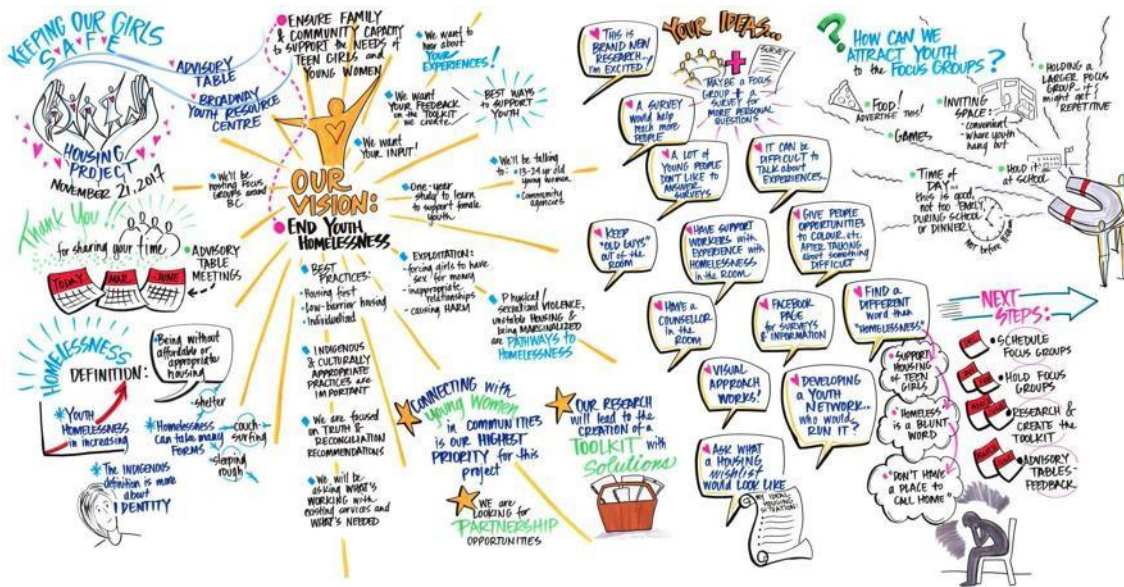 KEEPING OUR GIRLS
SAFE
ADVISORY
TABLE
BROADWAY
YOUTH RESOURCE
CENTRE
HOUSING
PROJECT
NOVEMBER 21, 2017
Thank You!!
for sharing your time
TODAY
MAR
JUNE
ADVISORY
TABLE
MEETINGS
HOMELESSNESS
DEFINITION:
Being without
affordable or
appropriate
housing
YOUTH
HOMELESSNESS
is increasing
Homelessness
can take many
FORMS
shelter
couch-
surfing
sleeping
rough
The INDIGENOUS
definition is more
about
IDENTITY
ENSURE FAMILY
& COMMUNITY CAPACITY
to SUPPORT the NEEDS of
TEEN GIRLS and
YOUNG WOMEN
OUR
VISION:
END YOUTH
HOMELESSNESS
We want to
hear about
YOUR
EXPERIENCES!
We want
YOUR FEEDBACK
on the TOOLKIT
we create
BEST WAYS
to SUPPORT
YOUTH
We want
YOUR INPUT!
We'll be talking
to:
13-24 yr old
young women
Community
agencies
One-year
study to learn
to support female
youth
We'll be
hosting FOCUS
GROUPS around
BC
BEST
PRACTICES:
Housing first
Low-barrier housing
Individualized
EXPLOITATION:
forcing girls to have
sex for money
inappropriate
relationships
causing HARM
Physical/
sexualized VIOLENCE,
unstable HOUSING &
being MARGINALIZED
are PATHWAYS to
HOMELESSNESS
INDIGENOUS
& CULTURALLY
APPROPRIATE
PRACTICES are
IMPORTANT
We are focused
on TRUTH &
RECONCILIATION
RECOMMENDATIONS
We will be
asking WHAT'S
WORKING with
existing services and
WHAT'S NEEDED
CONNECTING with
young women
in COMMUNITIES
is OUR HIGHEST
PRIORITY for this
project
WE ARE
LOOKING for
PARTNERSHIP
OPPORTUNITIES
OUR RESEARCH
will lead to the
CREATION of a
TOOLKIT with
Solutions
YOUR IDEAS...
THIS IS
BRAND NEW
RESEARCH...
I'M EXCITED!
SURVEY
MAYBE A FOCUS
GROUP + a
SURVEY for
MORE PERSONAL
QUESTIONS
A SURVEY
would help
reach more
PEOPLE
A LOT of
YOUNG PEOPLE
DON'T LIKE to
ANSWER
SURVEYS
IT CAN be
DIFFICULT to
TALK about
EXPERIENCES...
KEEP
"OLD GUYS"
OUT of the
ROOM
HAVE SUPPORT
WORKERS with
EXPERIENCE with
HOMELESSNESS
in the ROOM
GIVE PEOPLE
OPPORTUNITIES
to COLOUR, etc.
AFTER TALKING
about something
DIFFICULT
HAVE A
COUNSELLOR
in the
ROOM
FACEBOOK
PAGE
for SURVEYS
& INFORMATION
FIND A
DIFFERENT
WORD then
"HOMELESSNESS"
VISUAL
APPROACH
WORKS!
DEVELOPING
a YOUTH
NETWORK...
who would
RUN IT?
ASK WHAT
a HOUSING
wishlist
WOULD LOOK LIKE
MY IDEAL
HOUSING
SITUATION:
SUPPORT
HOUSING
OF TEEN
GIRLS
HOMELESS
IS A BLUNT
WORD
"DON'T HAVE
A PLACE to
CALL HOME"
HOW CAN WE
ATTRACT YOUTH
to the FOCUS GROUPS?
FOOD!
ADVERTISE this!
GAMES
INVITING
SPACE:
convenient
where youth
hang out
HOLDING a
LARGER FOCUS
GROUP... it
might get
REPETITIVE
HOLD it
AT SCHOOL
TIME OF
DAY...
this is good,
not too EARLY,
DURING SCHOOL
or DINNER!
NEXT
STEPS:
SCHEDULE
FOCUS GROUPS
HOLD FOCUS
GROUPS
RESEARCH &
CREATE the
TOOLKIT
ADVISORY
TABLES-
FEEDBACK